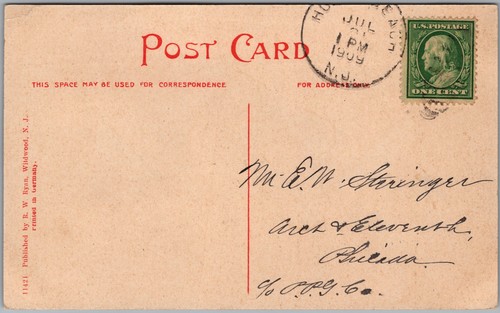 POST CARD
THIS SPACE MAY BE USED FOR CORRESPONDENCE
FOR ADDRESS ONLY
BEACH
JUL
1 PM
1909
N.J.
U.S. POSTAGE
ONE CENT
Mr E. W. Steringer
Arch & Eleventh,
Philada.
c/o P.P.G. Co.
11421 Published by R. W. Ryan, Wildwood, N. J.
Printed in Germany.